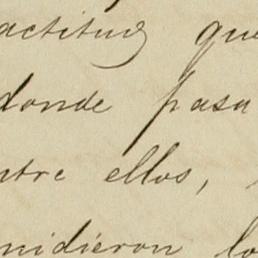 actitud que
donde pasa
ntre ellos,
midieron lo